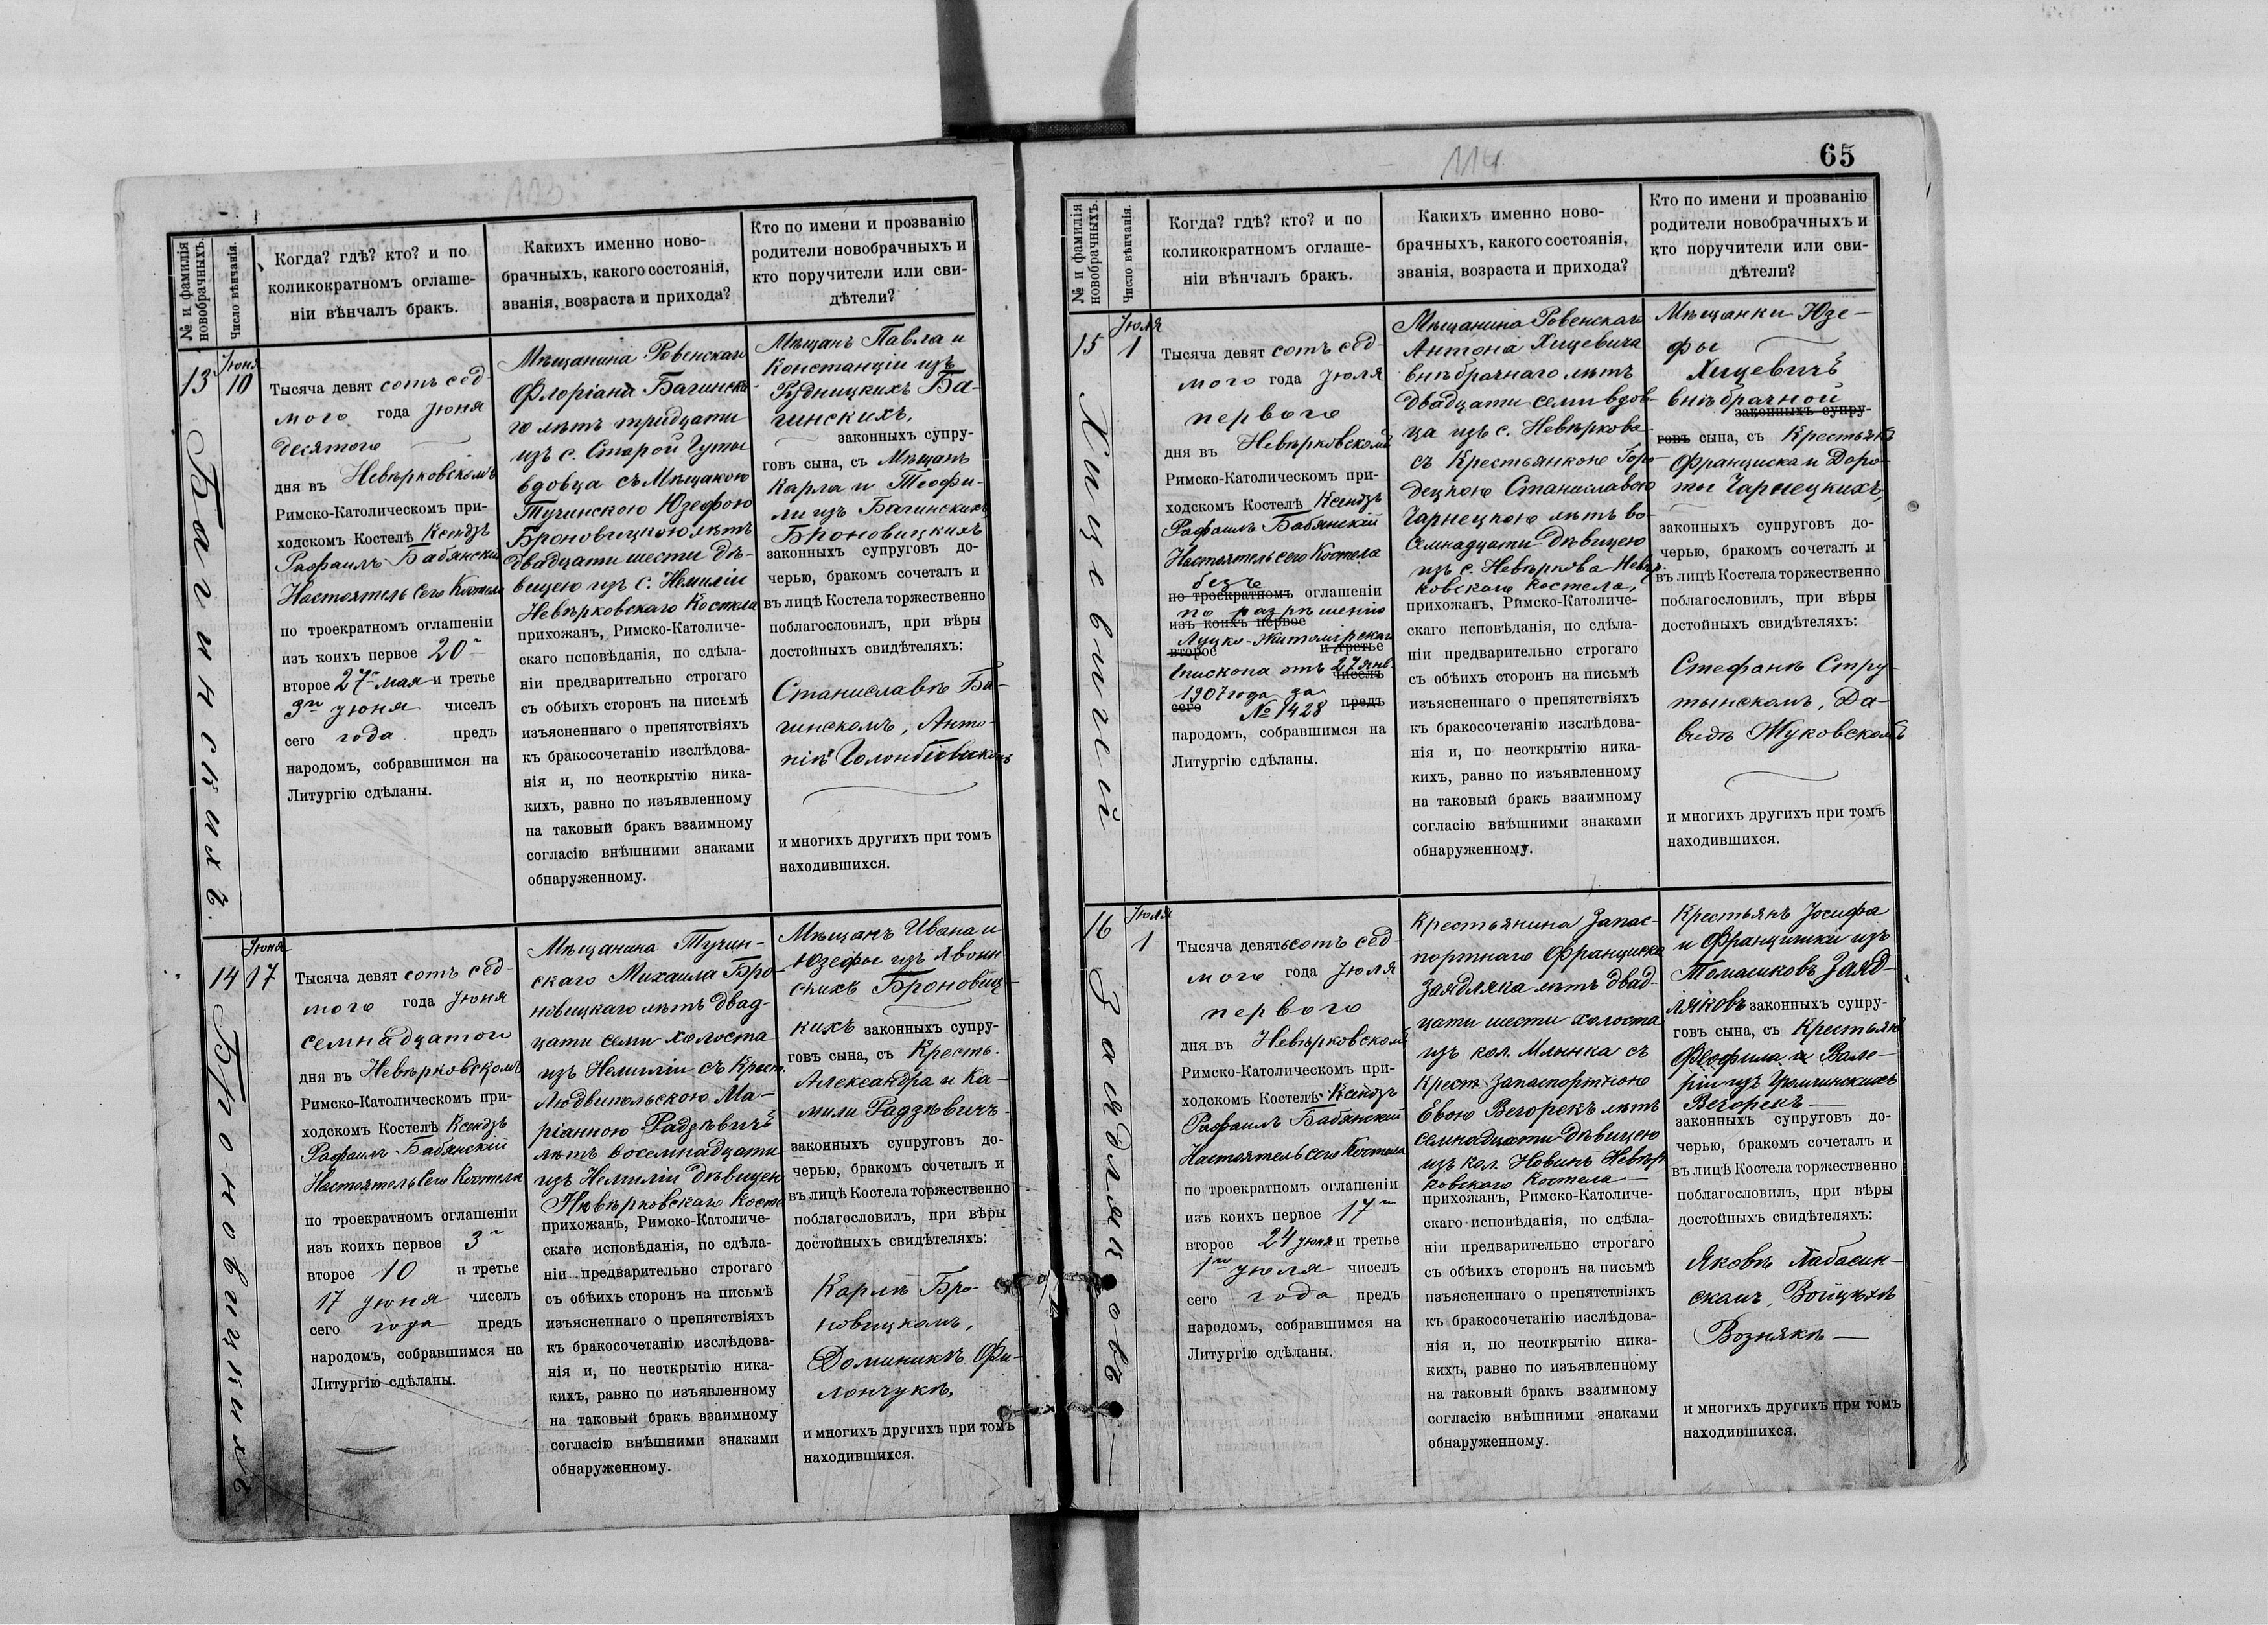 113
№ и фамилія
новобрачныхъ.
Число вѣнчанія.
Когда? гдѣ? кто? и по
коликократномъ оглаше-
ніи вѣнчалъ бракъ.
Какихъ именно ново-
брачныхъ, какого состоянія,
званія, возраста и прихода?
Кто по имени и прозванію
родители новобрачныхъ и
кто поручители или сви-
дѣтели?
13
Багинскихъ.
Іюня
10
Тысяча девят сотъ сед-
мого года Іюня
десятого
дня въ Невѣрковскомъ
Римско-Католическомъ при-
ходскомъ Костелѣ Ксендзъ
Рафаилъ Бабянскій
Настоятель сего Костела
по троекратномъ оглашеніи
изъ коихъ первое 20
второе 27 мая и третье
3го іюня чиселъ
сего года предъ
народомъ, собравшимся на
Литургію сдѣланы.
Мѣщанина Ровенскаго
Флоріана Багинска-
го лѣтъ тридцати
изъ с. Старой Гуты
вдовца съ Мѣщакою
Тучинскою Юзефою
Броновицкою лѣтъ
двадцати шести дѣ-
вицею изъ с. Немиліи
Невѣрковскаго Костела
прихожанъ, Римско-Католиче-
скаго исповѣданія, по сдѣла-
ніи предварительно строгаго
съ обѣихъ сторонъ на письмѣ
изъясненнаго о препятствіяхъ
къ бракосочетанію изслѣдова-
нія и, по неоткрытію ника-
кихъ, равно по изъявленному
на таковый бракъ взаимному
согласію внѣшними знаками
обнаруженному.
Мѣщанъ Павла и
Констанціи изъ
Рудницкихъ Ба-
гинскихъ,
законныхъ супру-
говъ сына, съ Мѣщанъ
Карла и Теофи-
ли изъ Багинскихъ
Броновицкихъ
законныхъ супруговъ до-
черью, бракомъ сочеталъ и
въ лицѣ Костела торжественно
поблагословилъ, при вѣры
достойныхъ свидѣтеляхъ:
Станиславѣ Ба-
гинскомъ, Анто-
ніѣ
и многихъ другихъ при томъ
находившихся.
14
Броновицкихъ
Іюня
17
Тысяча девят сотъ сед-
мого года Іюня
семнадцатого
дня въ Невѣрковскомъ
Римско-Католическомъ при-
ходскомъ Костелѣ Ксендзъ
Рафаилъ Бабянскій
Настоятель Сего Костела
по троекратномъ оглашеніи
изъ коихъ первое 3
второе 10 и третье
17 іюня чиселъ
сего года предъ
народомъ, собравшимся на
Литургію сдѣланы.
Мѣщанина Тучин-
скаго Михаила Бро-
новицкаго лѣтъ двад-
цати семи холоста
изъ Немиліи съ Крест.
Людвипольскою Ма-
ріанною Радзѣвичъ
лѣтъ восемнадцати
изъ Немиліи дѣвицею
Невѣрковскаго Косте
прихожанъ, Римско-Католиче-
скаго исповѣданія, по сдѣла-
ніи предварительно строгаго
съ обѣихъ сторонъ на письмѣ
изъясненнаго о препятствіяхъ
къ бракосочетанію изслѣдова-
нія и, по неоткрытію ника-
кихъ, равно по изъявленному
на таковый бракъ взаимному
согласію внѣшними знаками
обнаруженному.
Мѣщанъ Ивана и
Юзефы изъ Явоин
скихъ Броновиц-
кихъ законныхъ супру-
говъ сына, съ Кресть.
Александра и Ка-
мили Радзѣвичъ
законныхъ супруговъ до-
черью, бракомъ сочеталъ и
въ лицѣ Костела торжественно
поблагословилъ, при вѣры
достойныхъ свидѣтеляхъ:
Карлѣ Бро-
новицкомъ,
Доминикѣ Фи-
лончукѣ,
и многихъ другихъ при томъ
находившихся.
114
65
№ и фамилія
новобрачныхъ.
Число вѣнчанія.
Когда? гдѣ? кто? и по
коликократномъ оглаше-
ніи вѣнчалъ бракъ.
Какихъ именно ново-
брачныхъ, какого состоянія,
званія, возраста и прихода?
Кто по имени и прозванію
родители новобрачныхъ и
кто поручители или сви-
дѣтели?
15
Хицевичей
Іюля
1
Тысяча девят сотъ сед-
мого года Іюля
перваго
дня въ Невѣрковскомъ
Римско-Католическомъ при-
ходскомъ Костелѣ Ксендзъ
Рафаилъ Бабянскій
Настоятель сего Костела
безъ
по троекратномъ оглашеніи
по разрѣшенію
изъ коихъ первое
Луцко-Житомірскаго
второе и третье
Епископа отъ 27 янв.
чиселъ
1907 года за
сего № 1428 предъ
народомъ, собравшимся на
Литургію сдѣланы.
Мѣщанина Ровенскаго
Антона Хицевича
внѣбрачнаго лѣтъ
двадцати семи вдов-
ца изъ с. Невѣркова
съ Крестьянкою Горо-
децкою Станиславою
Чарнецкою лѣтъ во-
семнадцати дѣвицею
изъ с. Невѣркова Невѣр-
ковскаго Костела,
прихожанъ, Римско-Католиче-
скаго исповѣданія, по сдѣла-
ніи предварительно строгаго
съ обѣихъ сторонъ на письмѣ
изъясненнаго о препятствіяхъ
къ бракосочетанію изслѣдова-
нія и, по неоткрытію ника-
кихъ, равно по изъявленному
на таковый бракъ взаимному
согласію внѣшними знаками
обнаруженному.
Мѣщанки Юзе-
фы
Хицевичъ
внѣбрачной
законныхъ супру-
говъ сына, съ Крестьянъ
Франциска и Доро-
ты Чарнецкихъ,
законныхъ супруговъ до-
черью, бракомъ сочеталъ и
въ лицѣ Костела торжественно
поблагословилъ, при вѣры
достойныхъ свидѣтеляхъ:
Стефанѣ Стру-
тынскомъ, Да-
видѣ Жуковскомъ
и многихъ другихъ при томъ
находившихся.
16
Заядляковъ
Іюля
1
Тысяча девятьсотъ сед-
мого года Іюля
перваго
дня въ Невѣрковскомъ
Римско-Католическомъ при-
ходскомъ Костелѣ Ксендзъ
Рафаилъ Бабянскій
Настоятель сего Костела
по троекратномъ оглашеніи
изъ коихъ первое 17го
второе 24 іюня и третье
1го іюля чиселъ
сего года предъ
народомъ, собравшимся на
Литургію сдѣланы.
Крестьянина Запас-
портнаго Франциска
Заядляка лѣтъ двад-
цати шести холоста
изъ кол. Млынка съ
Крест. Запаспортною
Евою Вечорекъ лѣтъ
семнадцати дѣвицею
изъ кол. Новинъ Невѣр
ковскаго Костела
прихожанъ, Римско-Католиче-
скаго исповѣданія, по сдѣла-
ніи предварительно строгаго
съ обѣихъ сторонъ на письмѣ
изъясненнаго о препятствіяхъ
къ бракосочетанію изслѣдова-
нія и, по неоткрытію ника-
кихъ, равно по изъявленному
на таковый бракъ взаимному
согласію внѣшними знаками
обнаруженному.
Крестьянъ Іосифа
и Францишки изъ
Томасиковъ Заяд-
ляковъ законныхъ супру-
говъ сына, съ Крестьянъ
Феофила и Вале-
ріи изъ
Вечорекъ
законныхъ супруговъ до-
черью, бракомъ сочеталъ и
въ лицѣ Костела торжественно
поблагословилъ, при вѣры
достойныхъ свидѣтеляхъ:
Яковѣ Лабасин-
скомъ, Войцѣхѣ
Вознякѣ
и многихъ другихъ при томъ
находившихся.